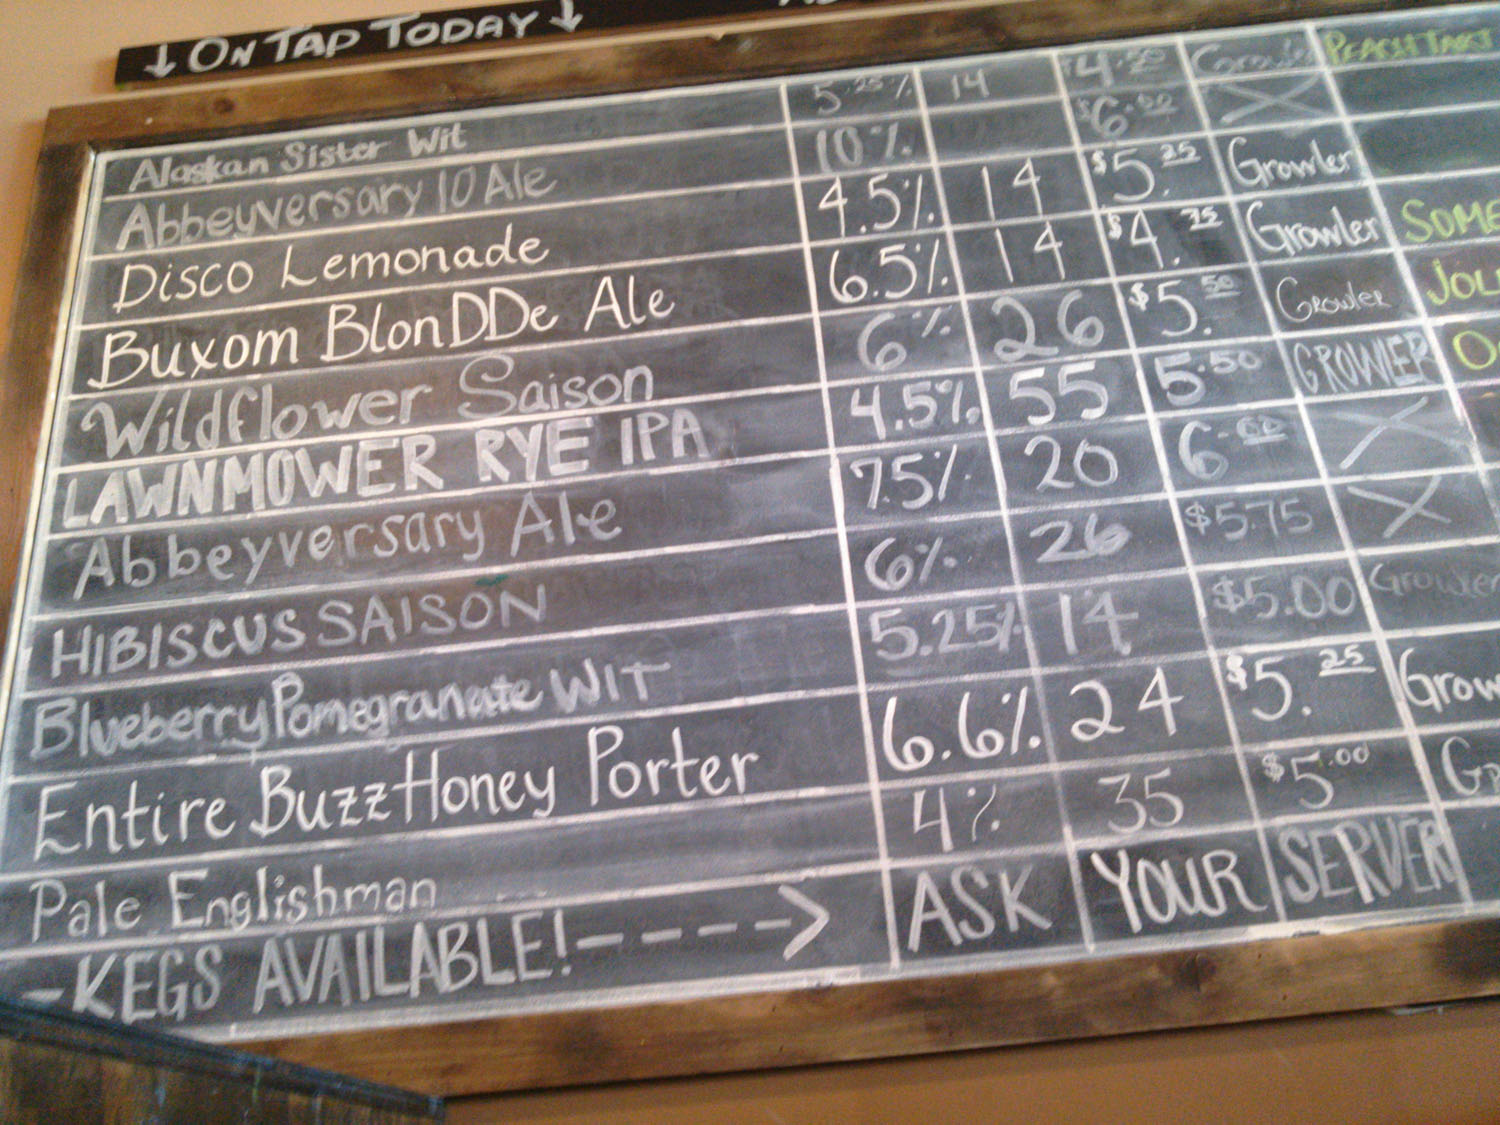 ↓ ON TAP TODAY ↓
Alaskan Sister Wit 5.25% 14 $4.50 Growler PEACH TART
Abbeyversary 10 Ale 10% $6.00 X
Disco Lemonade 4.5% 14 $5.25 Growler
Buxom BlonDDe Ale 6.5% 14 $4.75 Growler SOME
Wildflower Saison 6% 26 $5.50 Growler
LAWNMOWER RYE IPA 4.5% 55 5.50 GROWLER
Abbeyversary Ale 7.5% 20 6.00 X
HIBISCUS SAISON 6% 26 $5.75 X
Blueberry Pomegranate WIT 5.25% 14 $5.00 Growler
Entire Buzz Honey Porter 6.6% 24 $5.25 Grow
Pale Englishman 4% 35 $5.00
-KEGS AVAILABLE!----> ASK YOUR SERVER